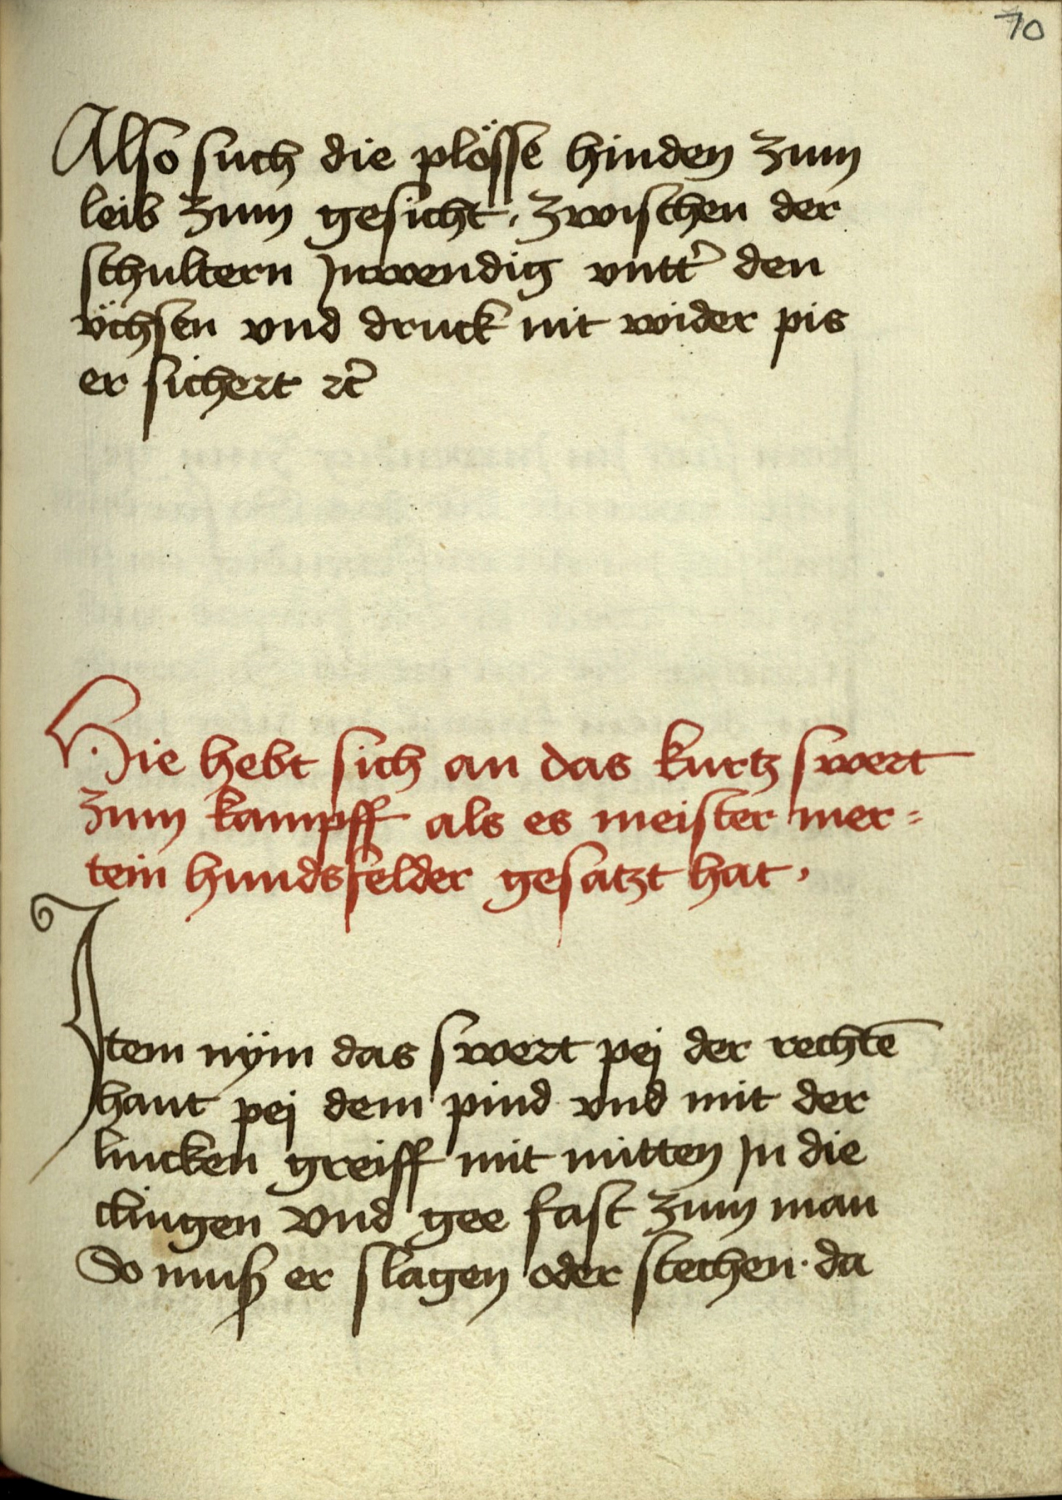 70
Also such die plösse hinden zum
leib zum gesicht, zwischen der
schultern Inwendig vntt&#x27; den
v̈chsen vnd druck nit wider pis
er sichert rc̃
Hie hebt sich an das kurtz swert
zum kampff als es meister mer=
tein hundsfelder gesatzt hat.
Item nÿm das swert pej der rechtē
hant pej dem pind vnd mit der
lincken greiff mit mitten In die
clingen Vnd gee fast zum man
So muß er slagen oder stechen. da